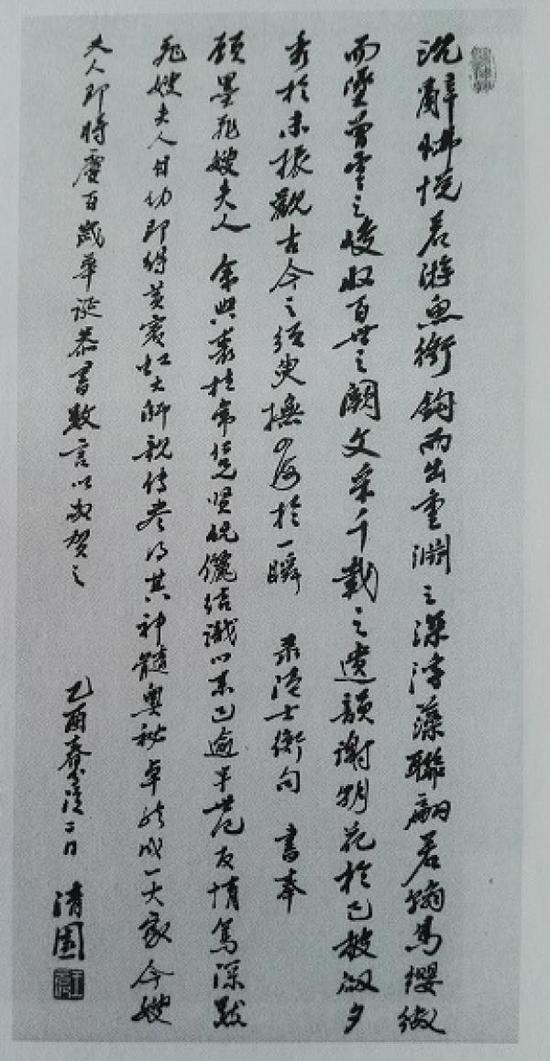 沈辭怫悅若游魚銜鉤而出重淵之深浮藻聯翩若翰鳥纓繳
而墜曾雲之峻收百世之闕文采千載之遺韻謝朝花於已披啟夕
秀於未振觀古今之須臾撫四海於一瞬 錄陸士衡句 書奉
顧墨飛嫂夫人 余與裘柱常兄賢伉儷結識以來已逾半世紀友情篤深默
飛嫂夫人自幼即得黃賓虹大師親傳盡得其神髓奧秘卓然成一大家今嫂
夫人即時慶百歲華誕恭書數言以敬賀之
乙酉春 清園